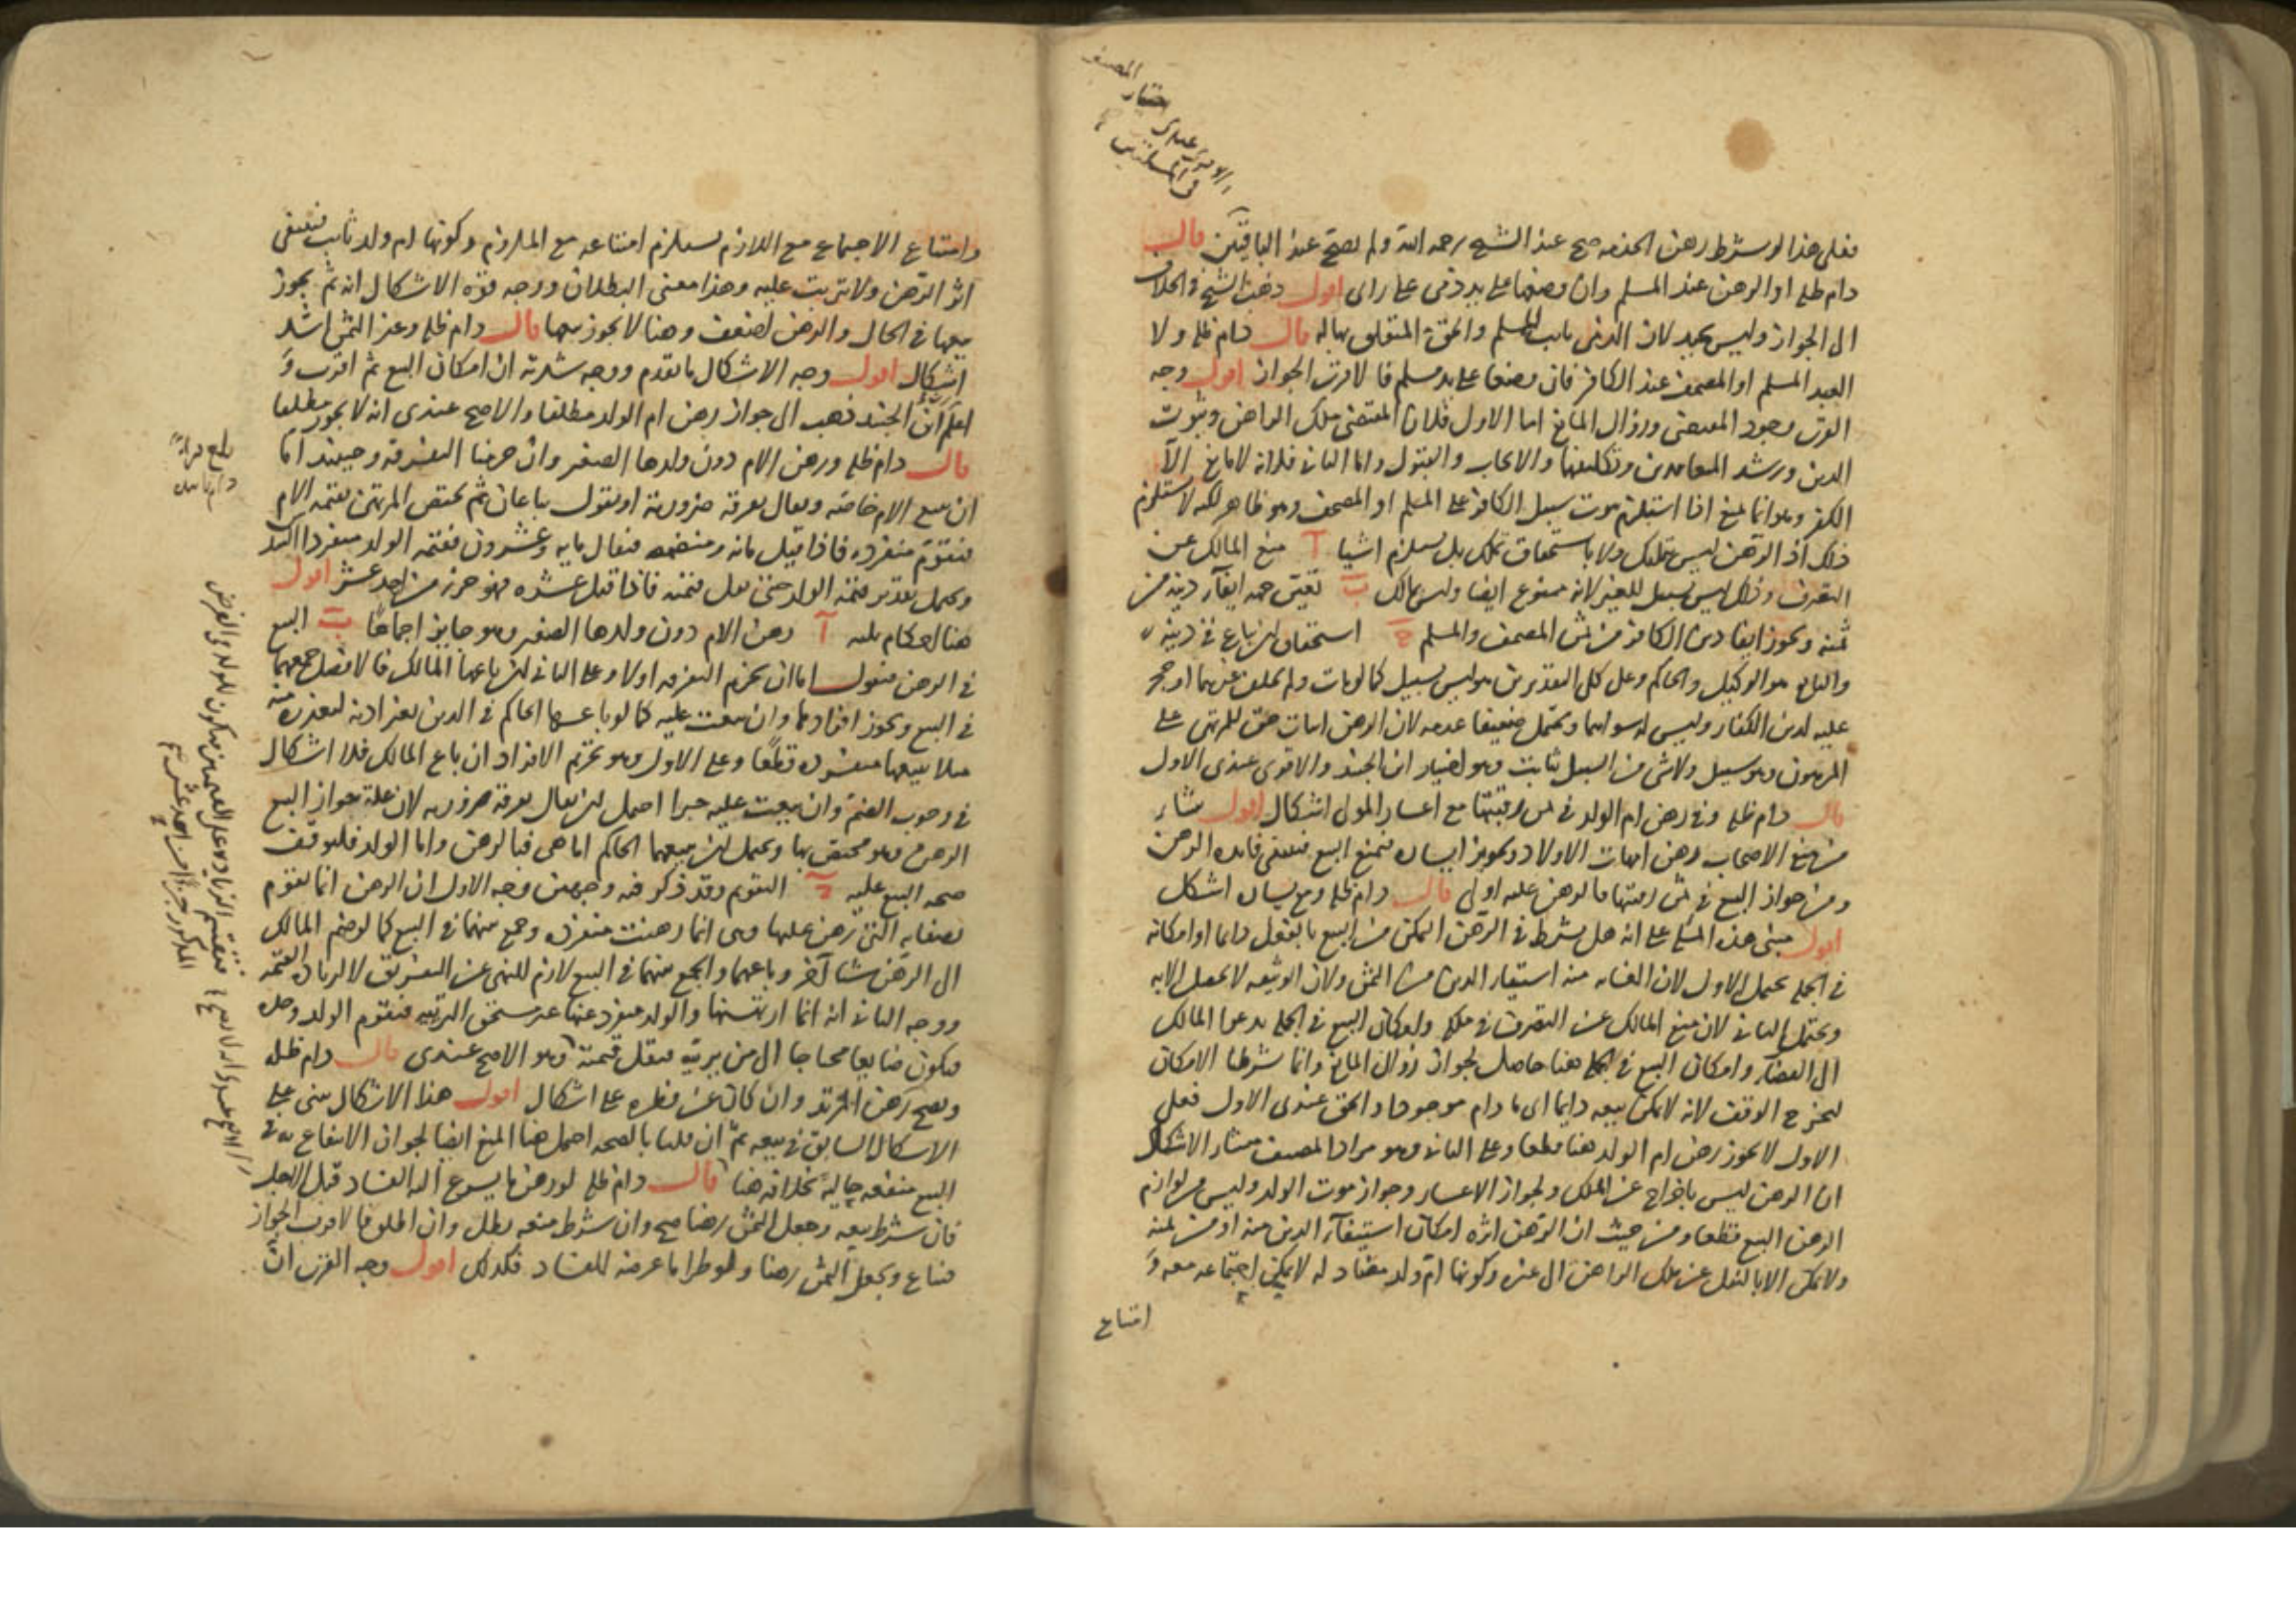 فعلى هذا لو شرط رهن الخدمة صح عند الشيخ رحمه الله ولم يصح عند الباقين قال
دام ظله او الرهن عند المسلم وان وضعها على يد ذمى على راى اقول ذهب الشيخ فى الخلاف
الى الجواز وليس بجيد لان الذمى نايب المسلم والحق المتعلق بها له قال دام ظله ولا
العبد المسلم او المصحف عند الكافر فان وضعا على يد مسلم فالاقرب الجواز اقول وجه
القرب وجود المقتضى وزوال المانع اما الاول فلان المقتضى ملك الراهن وثبوت
الدين ورشد المتعاقدين وتكليفهما والايجاب والقبول واما الثانى فلانه لا مانع الا
الكفر وهو انما يمنع اذا استلزم ثبوت سبيل الكافر على المسلم او المصحف وهو ظاهر لكنه لا يستلزم
ذلك اذ الرهن ليس بتملك ولا باستحقاق تملك بل يستلزم اشيا آ منع المالك عن
التصرف وذلك ليس بسبيل للغير لانه ممنوع ايضا وليس بمالك ب تعين جهة ايفاء دينه من
ثمنه ويجوز ايفا دين الكافر من ثمن المصحف والمسلم ج استحقاق ان يباع فى دينه
والبايع هو الوكيل والحاكم وعلى كلى التقديرين هو ليس بسبيل كما لو مات ولم يخلف غيرهما او حجر
عليه لدين الكفار وليس له سواهما ويحتمل ضعيفا عدمه لان الرهن اثبات حق للمرتهن على
المرهون وهو سبيل ولا شى من السبيل بثابت وهو اختيار ابن الجنيد والاقوى عندى الاول
قال دام ظله وفى رهن ام الولد فى ثمن رقبتها مع اعسار المولى اشكال اقول ينشاء
من منع الاصحاب رهن امهات الاولاد وتجويز ايساره فيمتنع البيع فينتفى فايده الرهن
ومن جواز البيع فى ثمن رقبتها فالرهن عليه اولى قال دام ظله ومع يساره اشكل
اقول مبنى هذه المسئلة على انه هل يشترط فى الرهن التمكن من البيع بالفعل دايما او امكانه
فى الجملة يحتمل الاول لان الغايه منه استيفاء الدين من الثمن ولان الوثيقه لا تحصل الا به
ويحتمل الثانى لان منع المالك عن التصرف فى ملكه وامكان البيع فى الجملة يدعوا المالك
الى القضاء وامكان البيع فى الجملة هنا حاصل لجواز زوال المانع وانما شرطنا الامكان
ليخرج الوقف لانه لا يمكن بيعه دايما اى ما دام موجودا والحق عندى الاول فعلى
الاول لا يجوز رهن ام الولد هنا قطعا وعلى الثانى وهو مراد المصنف منشاء الاشكال
ان الرهن ليس باخراج عن الملك ولجواز الاعسار وجواز موت الولد وليس من لوازم
الرهن البيع قطعا ومن حيث ان الرهن اثره امكان استيفاء الدين منه او من ثمنه
ولا يمكن الا بالنقل عن ملك الراهن الى غيره وكونها ام ولد مضاد له لا يمكن اجتماعه معه و
امتناع
وامتناع الاجتماع مع اللازم يستلزم امتناعه مع الملزوم وكونها ام ولد ثابت فينتفى
اثر الرهن ولا يترتب عليه وهذا معنى البطلان ووجه قوة الاشكال انه ثم يجوز
بيعها فى الحال والرهن اضعف وهنا لا يجوز بيعها قال دام ظله وغير الثمن اشد
اشكال اقول وجه الاشكال ما تقدم ووجه شدته ان امكان البيع ثم اقرب و
اعلم ان ابن الجنيد ذهب الى جواز رهن ام الولد مطلقا والاصح عندى انه لا يجوز مطلقا
قال دام ظله ورهن الام دون ولدها الصغير وان حرمنا التفرقه وحينئذ اما
ان يبيع الام خاصة ويقال تفرقه ضرورية او يقول يباعان ثم يختص المرتهن بقيمه الام
فيقوم منفرده فاذا قيل مائه ومنضمه فيقال مايه وعشرون فقيمه الولد منفردا السدس
ويحتمل تقدير قيمة الولد حتى تقل قيمته فاذا قيل عشره فهو جزء من احد عشر اقول
هنا احكام ثلثه آ رهن الام دون ولدها الصغير وهو جايز اجماعا ب البيع
فى الرهن فنقول اما ان نحرم التفرقه اولا وعلى الثانى ان باعها المالك فالافضل جمعهما
فى البيع ويجوز افرادها وان بيعت عليه كما لو باعها الحاكم فى الدين بغير اذنه لتعذره منه
فلا يبيعها منضمة قطعا وعلى الاول وهو تحريم الافراد ان باع المالك فلا اشكال
فى وجوب الضم وان بيعت عليه جبرا احتمل ان يقال تفرقه ضروريه لان علة جواز البيع
الرهن وهو مختص بها ويحتمل ان يبيعهما الحاكم اما هى فبالرهن واما الولد فلتوقف
صحه البيع عليه ج التقويم وقد ذكر فيه وجهين وجه الاول ان الرهن انما يقوم
بصفاته التى رهن عليها وهى انما رهنت منفرده وجمع بينهما فى البيع كما لو ضم المالك
الى الرهن شيا آخر وباعهما والجمع بينهما فى البيع لازم للنهى عن التفريق لا لزيادة القيمه
ووجه الثانى انه انما ارتهنها والولد منفرد عنها غير مستحق التربيه فيقوم الولد وحده
فيكون ضايعا محتاجا الى من يربيه فتقل قيمته وهو الاصح عندى قال دام ظله
ويصح رهن المرتد وان كان عن فطره على اشكال اقول هذا الاشكال مبنى على
الاشكال السابق فى بيعه ثم ان قلنا بالصحه احتمل هنا المنع ايضا لجواز الانتفاع به فى
البيع منفعه حاليه بخلافه هنا قال دام ظله لو رهن ما يسرع اليه الفساد قبل الاجل
فان شرط بيعه وجعل الثمن رهنا صح وان شرط منعه بطل وان اطلق فالاقرب الجواز
فيباع ويجعل الثمن رهنا ولو طرا ما عرضه للفساد فكذلك اقول وجه القرب ان